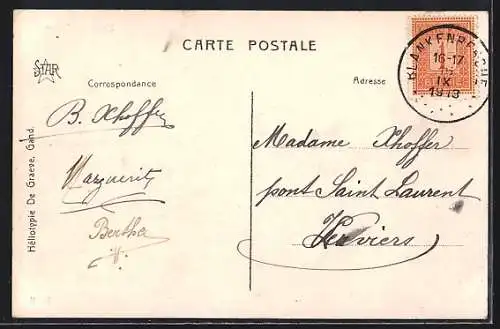 CARTE POSTALE
STAR
Correspondance
Adresse
BLANKENBERGHE
16-17
IX
1913
1
B. Xhoffer
Marguerite
Bertha
Madame Xhoffer
pont Saint Laurent
Verviers
Héliotypie De Graeve, Gand.